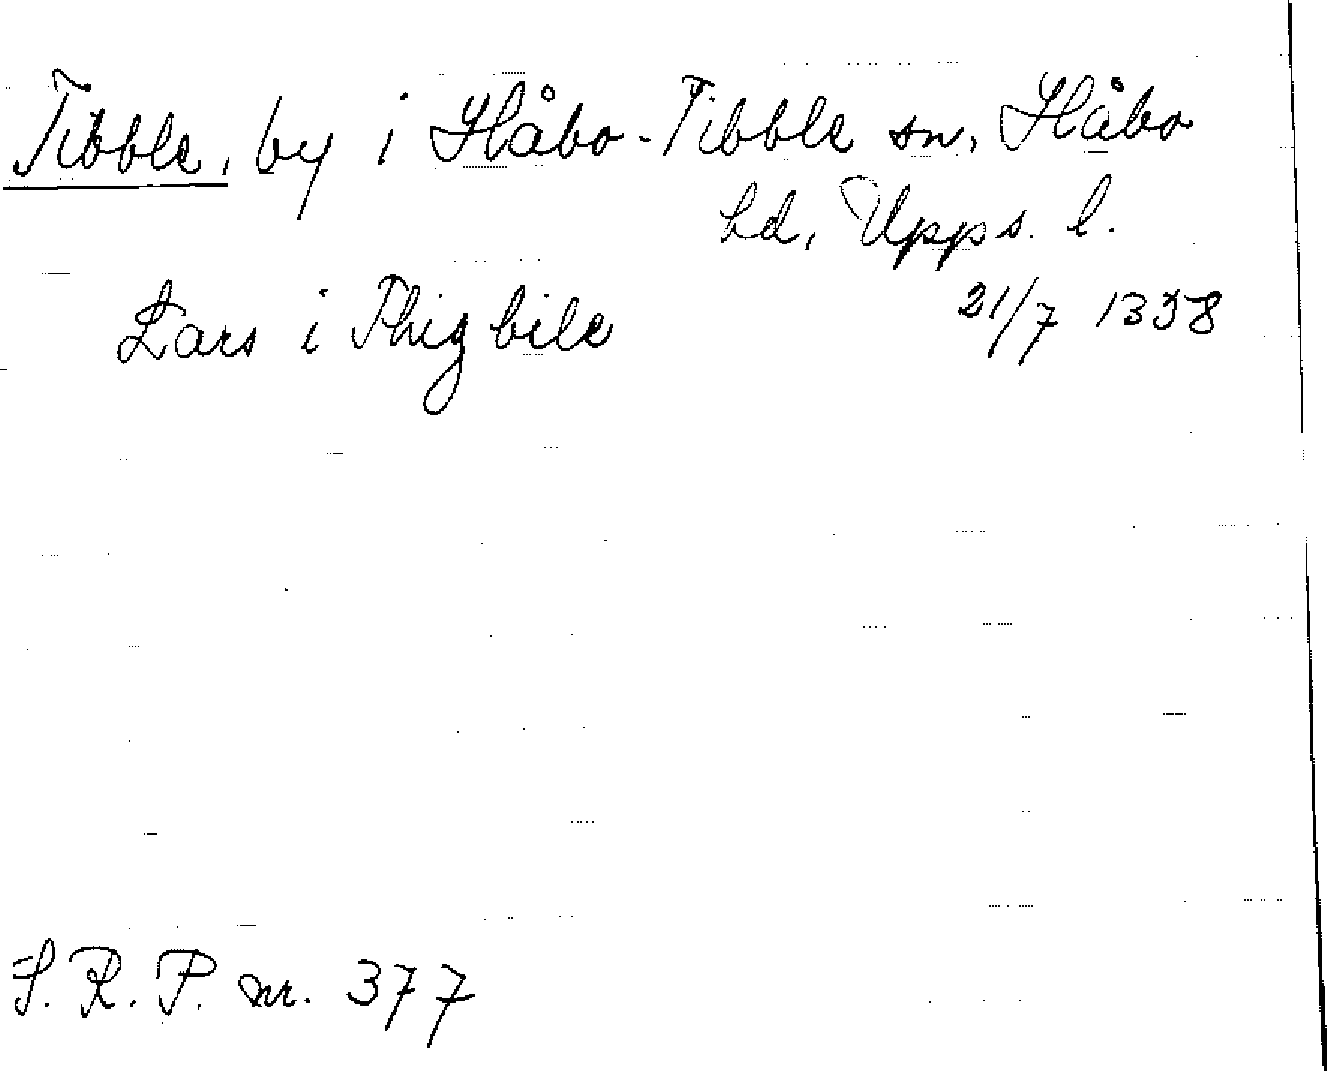 Tibble, by i Håbo-Tibble sn, Håbo
hd, Upps. l.
Lars i Thigbile 21/7 1358
S.R.P. nr. 377